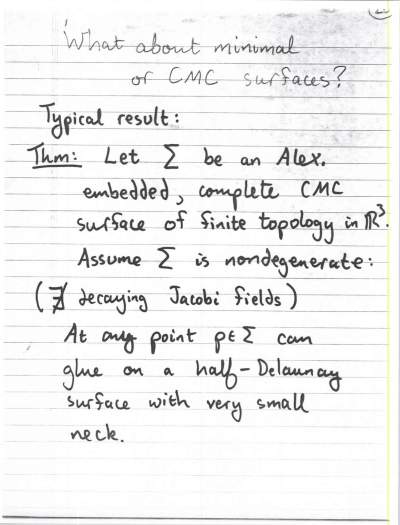 What about minimal
or CMC surfaces?
Typical result:
Thm: Let Σ be an Alex.
embedded, complete CMC
surface of finite topology in ℝ³.
Assume Σ is nondegenerate:
(∄ decaying Jacobi fields)
At any point p∈Σ can
glue on a half-Delaunay
surface with very small
neck.